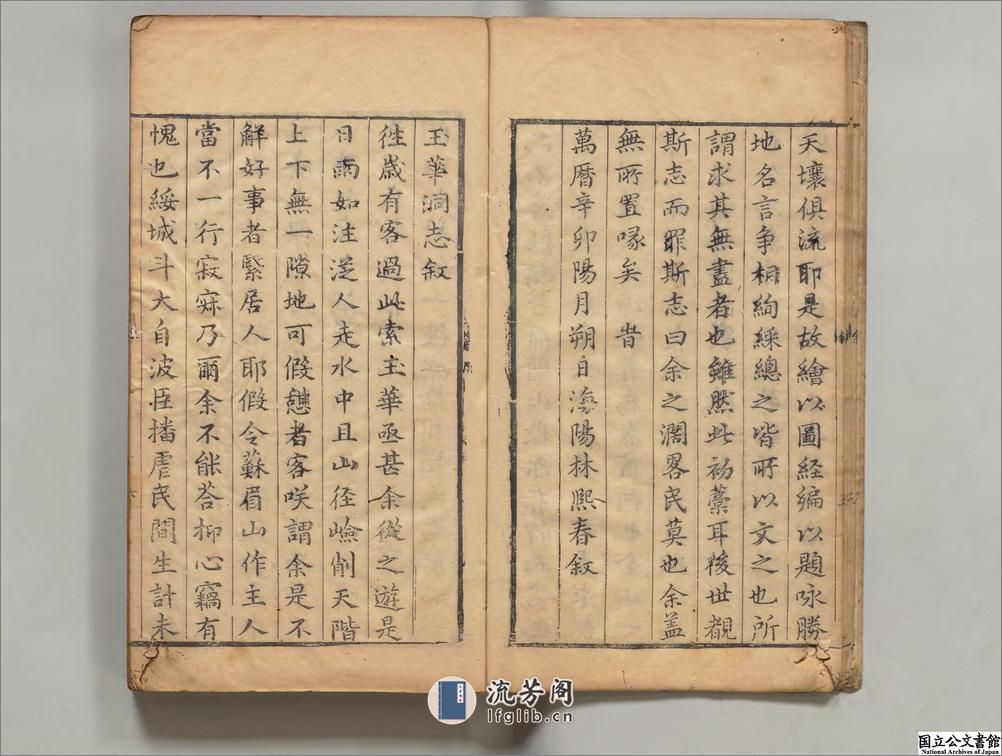 天壤俱流耶是故繪以圖経編以題咏勝
地名言爭相絢綵總之皆所以文之也所
謂求其無盡者也雖然此初藁耳後世觀
斯志而罪斯志曰余之濶畧民莫也余盖
無所置喙矣 旹
萬曆辛卯陽月朔日海陽林熈春叙
玉華洞志叙
徃歳有客過此索玉華亟甚余從之遊是
日雨如注淫人走水中且山徑嶮削天階
上下無一隙地可假憇者客咲謂余是不
觧好事者緊居人耶假令蘇眉山作主人
當不一行寂寐乃爾余不能荅抑心竊有
愧也綏城斗大自波臣播虐民間生計未
流芳阁
lfglib.cn
国立公文書館
National Archives of Japan